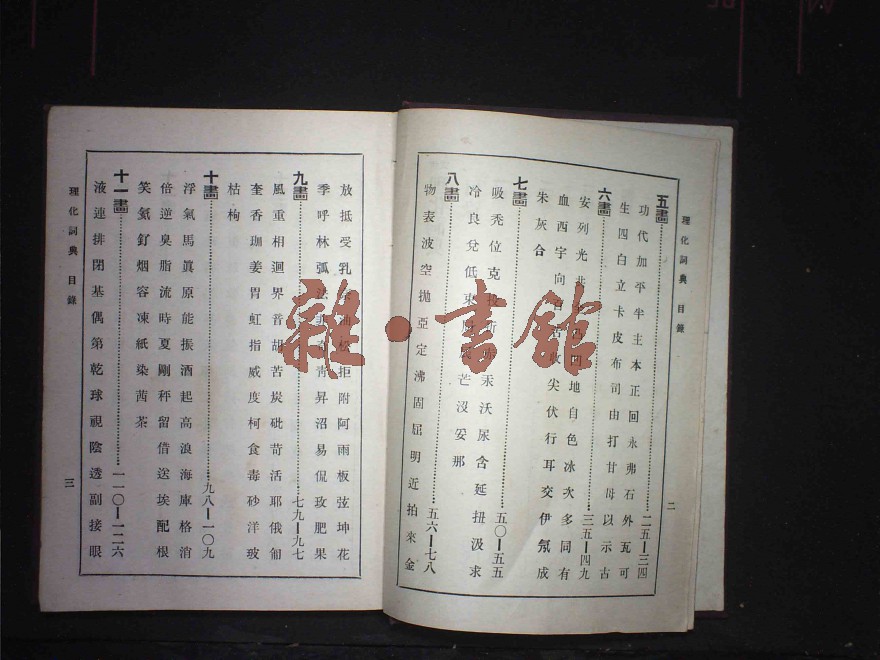 理化詞典 目錄
二
五畫 二五—三四
功代加平半主本正回永弗石外瓦可
生四白立卡皮布司由打甘母以示古
六畫 三五—四九
安列光 地自色冰次多同有
血西字向 尖伏行耳交伊氖成
朱灰合
七畫 五〇—五五
吸禿位克 汞沃尿含延扭汲求
冷良兌低 芒沒妥那
八畫 五六—七八
物表波空拋亞定沸固屈明近拍來金
放抵受乳 油 拒附阿雨板弦坤花
季呼林弧法 靑昇沼易侃玫肥果
九畫 七九—九七
風重相迴界音胡苦炭砒苛活耶俄 
奎香珈姜胃虹指威度柯食毒砂洋玻
枯枸
十畫 九八—一〇九
浮氣馬眞原能振酒起高浪海庫格消
倍逆臭脂流時夏剛秤留借送埃配根
笑氨釘烟容凍紙染茜茶
十一畫 一一〇—一二六
液連排閉基偶第乾球視陰透副接眼
理化詞典 目錄
三
雜·書館